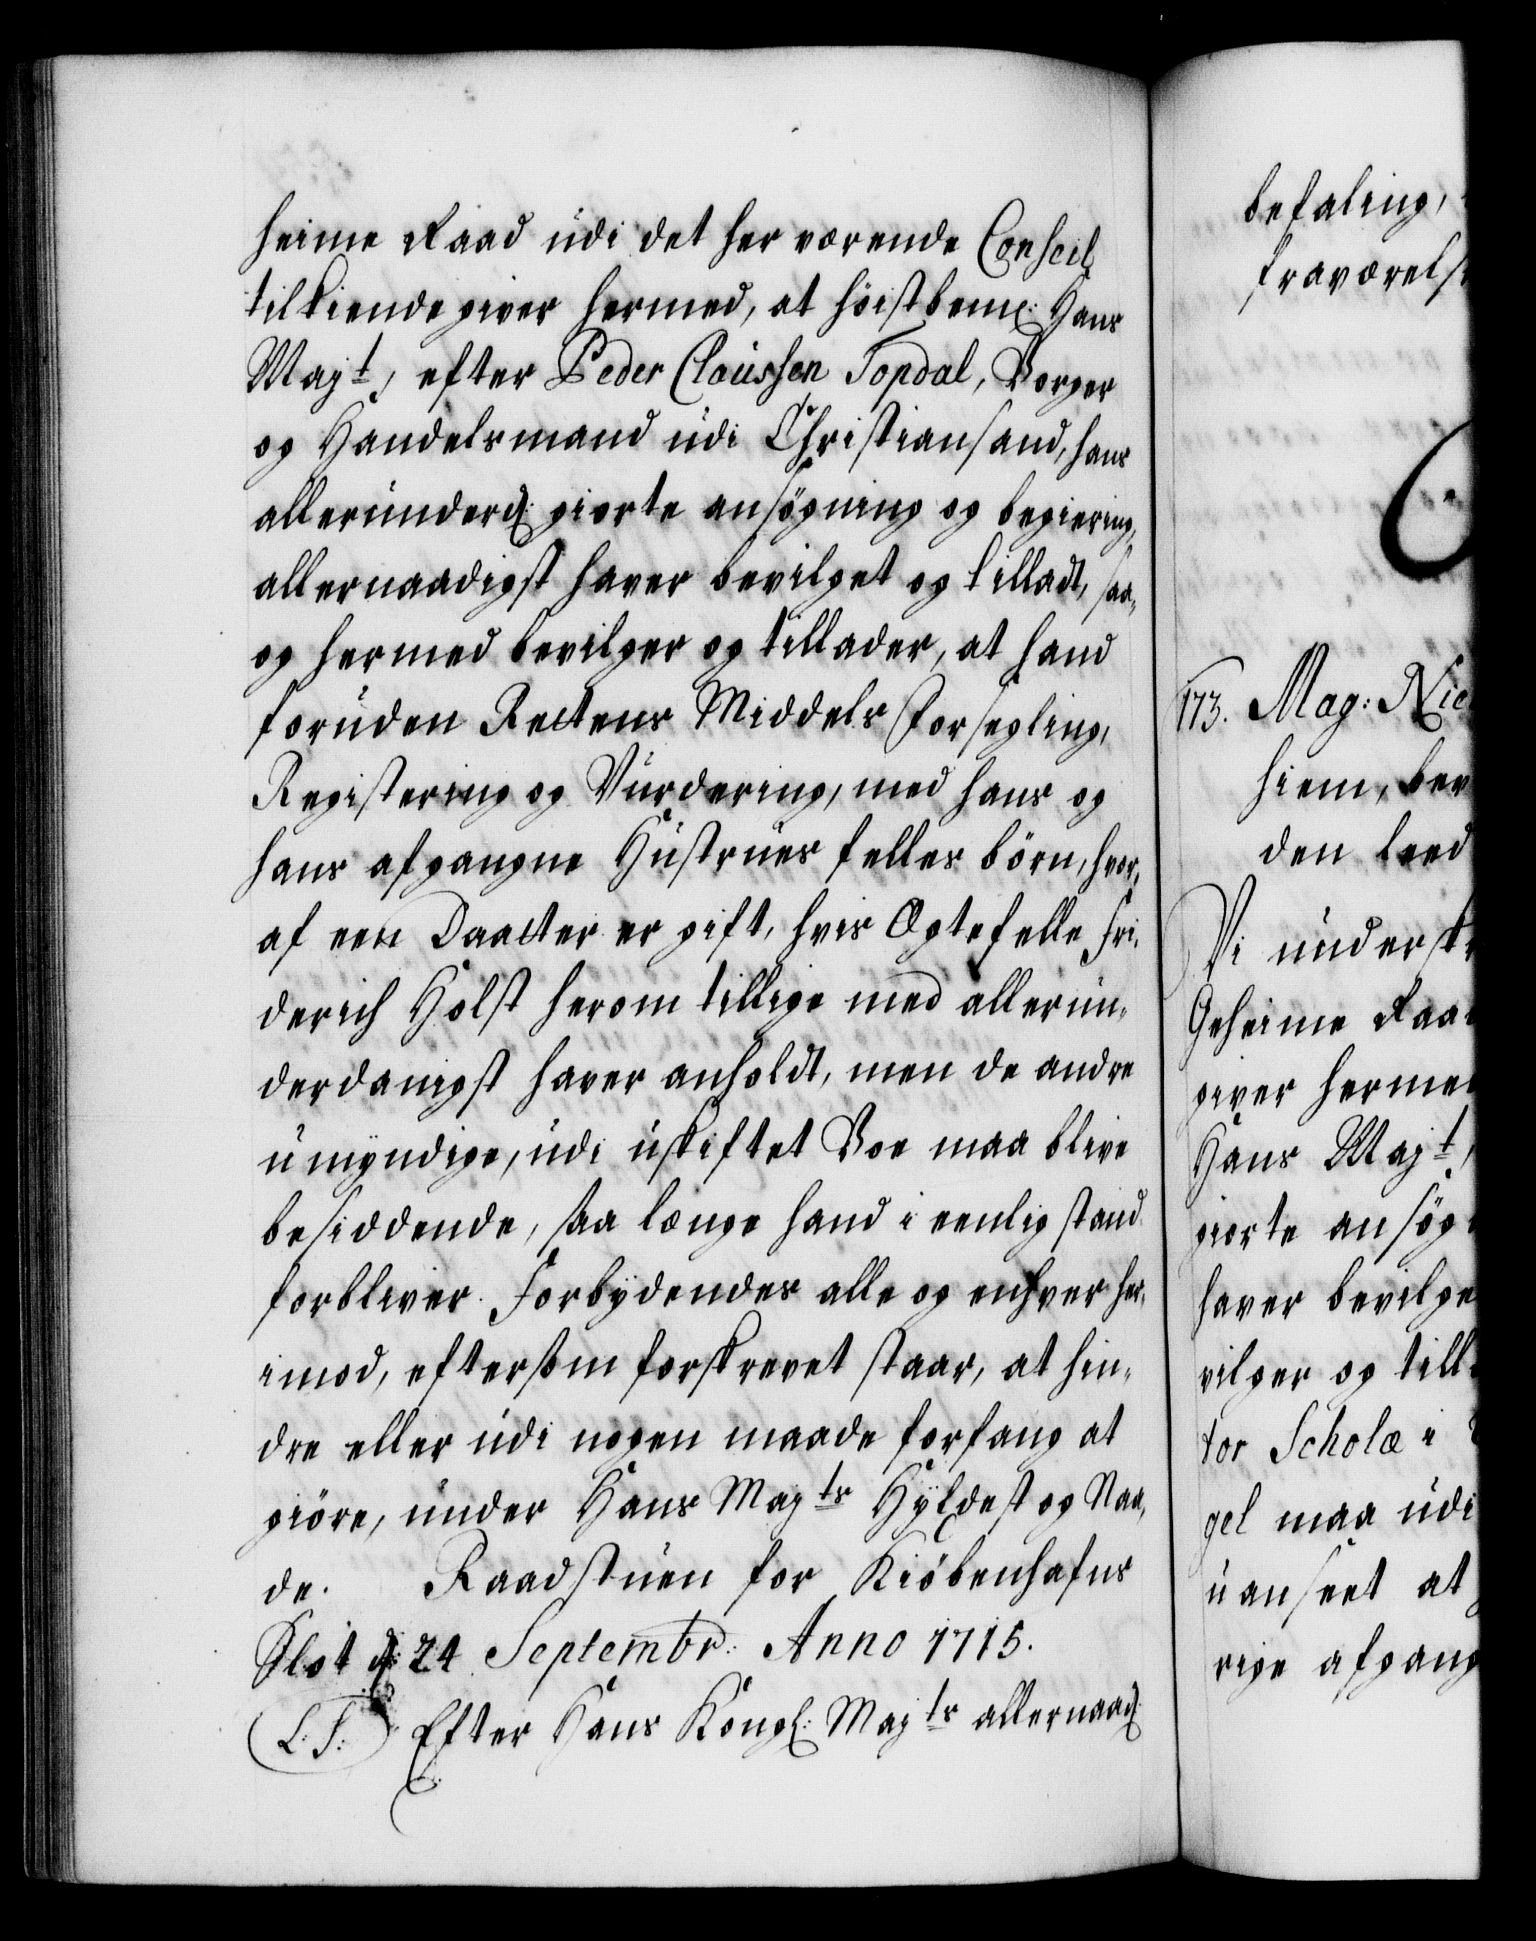 heime Raad udi det her værende Conseil
tilkiende giver hermed, at höistbem: Hans
Majt, efter Peder Claussen Topdal, Borger
og Handelsmand udi Christiansand, hans
allerunderd: giorte ansøgning og begiering,
allernaadigst haver bevilget og tilladt, saa,
og hermed bevilger og tillader, at hand
foruden Rettens Middels Forsegling,
Registering og Vurdering, med hans og
hans afgangne Hustrues felles börn, hvor,
af een Daatter er gift, hvis Ægtefelle Fri,
derich Holst herom tillige med allerun,
derdanigst haver anholdt, men de andre
umyndige, udi uskiftet Boe maa blive
besiddende, saa længe hand i eenlig stand
forbliver. Forbydendes alle og enhver her,
imod, eftersom forskrevet staar, at hin,
dre eller udi nogen maade forfang at
giöre, under Hans Majts Hyldest og Naa,
de. Raadstuen for Kiöbenhafns
Slot d: 24 Septembr: Anno 1715.
L. S. Efter Hans Kongl: Majts allernaad:
befaling,
fraværels
173. Mag: Nic
hiem, bev
den leed
Vi underskr
Geheime Raad
giver hermed
Hans Majt,
giorte ansøg
haver bevilge
vilger og till
tor Scholæ i
gel maa udi
uanseet at
rige afgang